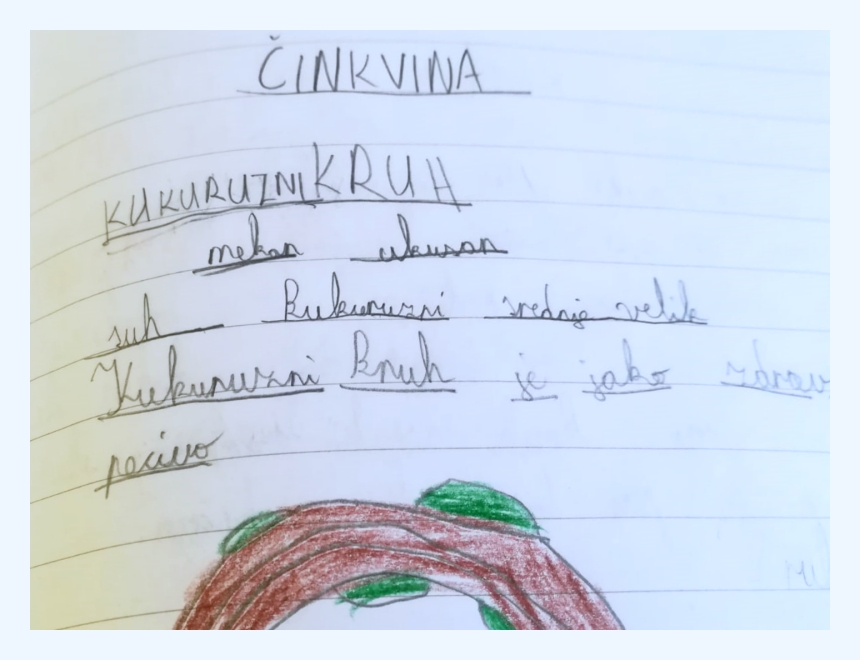 ČINKVINA
KUKURUZNI KRUH
mekan ukusan
suh kukuruzni srednje velik
Kukuruzni kruh je jako zdrav
pecivo